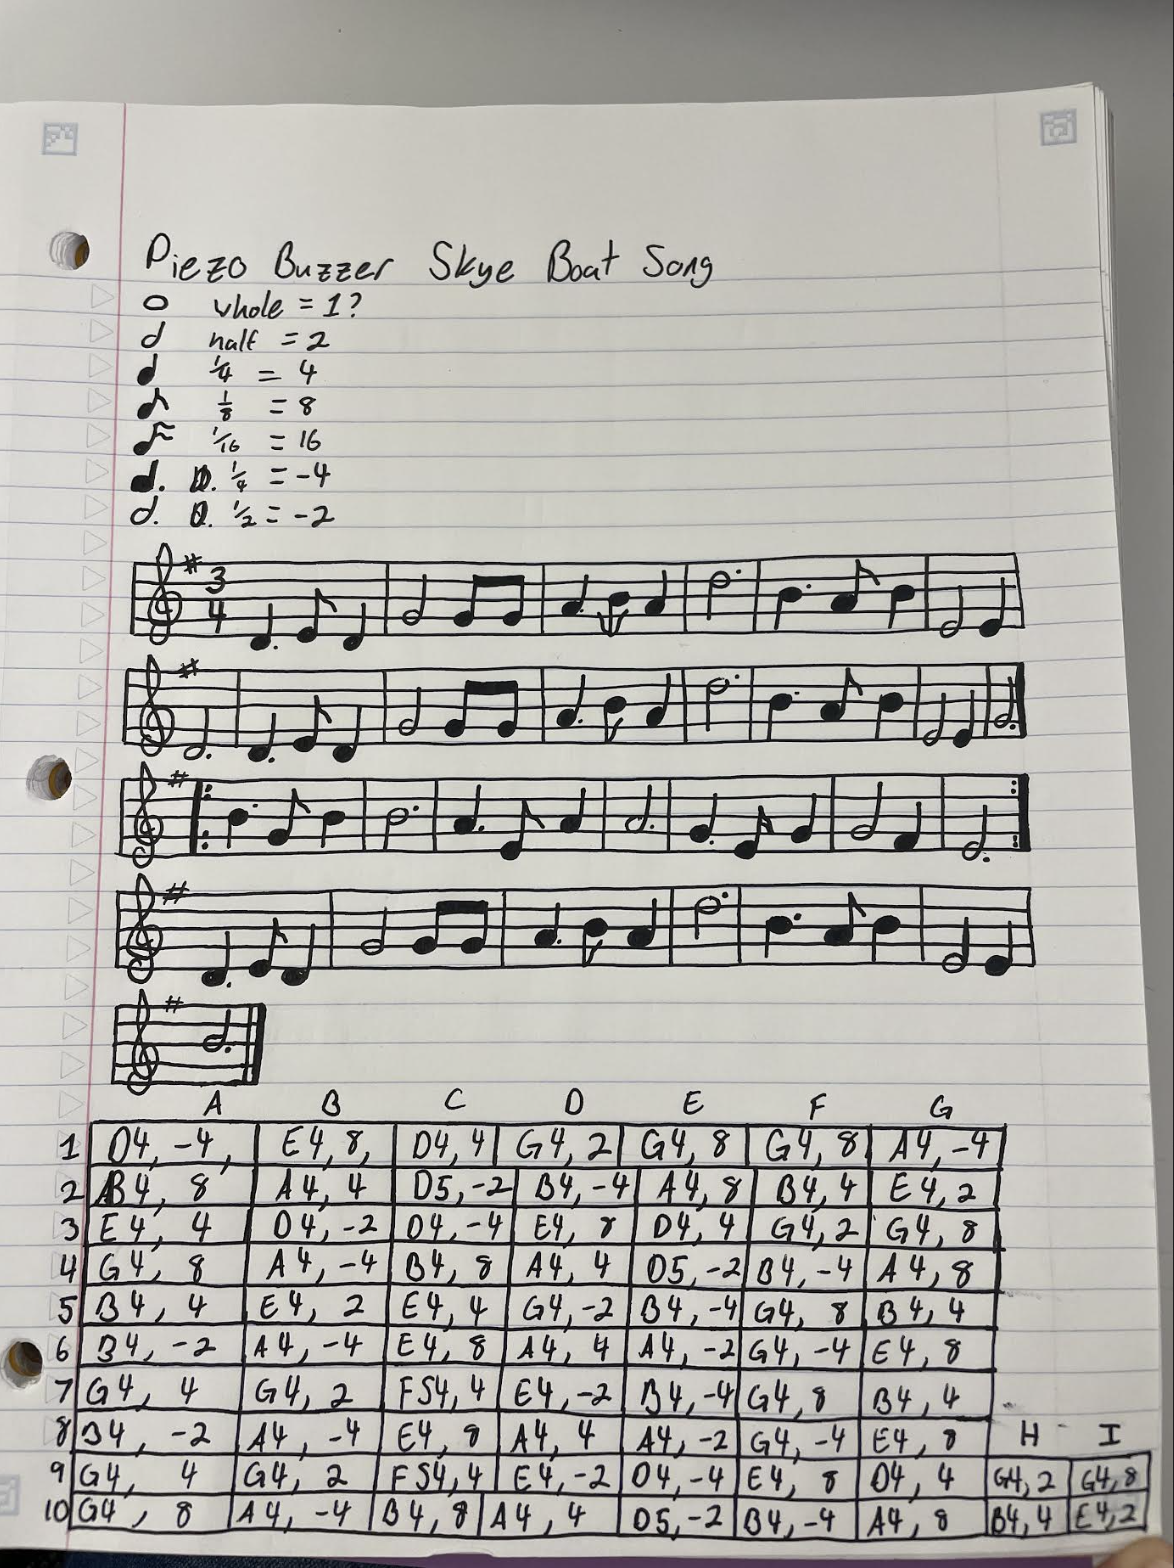 Piezo Buzzer Skye Boat Song
whole = 1?
half = 2
1/4 = 4
1/8 = 8
1/16 = 16
D. 1/4 = -4
D. 1/2 = -2
3
4
A B C D E F G
1 D4, -4, E4, 8, D4, 4 G4, 2 G4, 8 G4, 8 A4, -4
2 B4, 8 A4, 4 D5, -2 B4, -4 A4, 8 B4, 4 E4, 2
3 E4, 4 D4, -2 D4, -4 E4, 8 D4, 4 G4, 2 G4, 8
4 G4, 8 A4, -4 B4, 8 A4, 4 D5, -2 B4, -4 A4, 8
5 B4, 4 E4, 2 E4, 4 G4, -2 B4, -4 G4, 8 B4, 4
6 B4, -2 A4, -4 E4, 8 A4, 4 A4, -2 G4, -4 E4, 8
7 G4, 4 G4, 2 FS4, 4 E4, -2 B4, -4 G4, 8 B4, 4
8 B4, -2 A4, -4 E4, 8 A4, 4 A4, -2 G4, -4 E4, 8 H I
9 G4, 4 G4, 2 FS4, 4 E4, -2 D4, -4 E4, 8 D4, 4 G4, 2 G4, 8
10 G4, 8 A4, -4 B4, 8 A4, 4 D5, -2 B4, -4 A4, 8 B4, 4 E4, 2